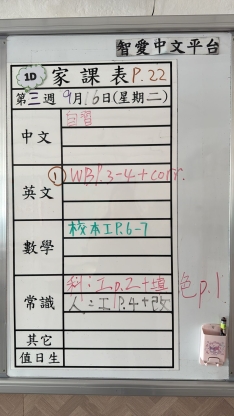 智愛中文平台
1D 家課表 P.22
第三週 9月16日(星期二)
中文 自習
英文 ① WB P.3-4 + corr.
數學 校本工P.6-7
常識 科:工p.2+填色p.1
人:工P.4+改
其它
值日生